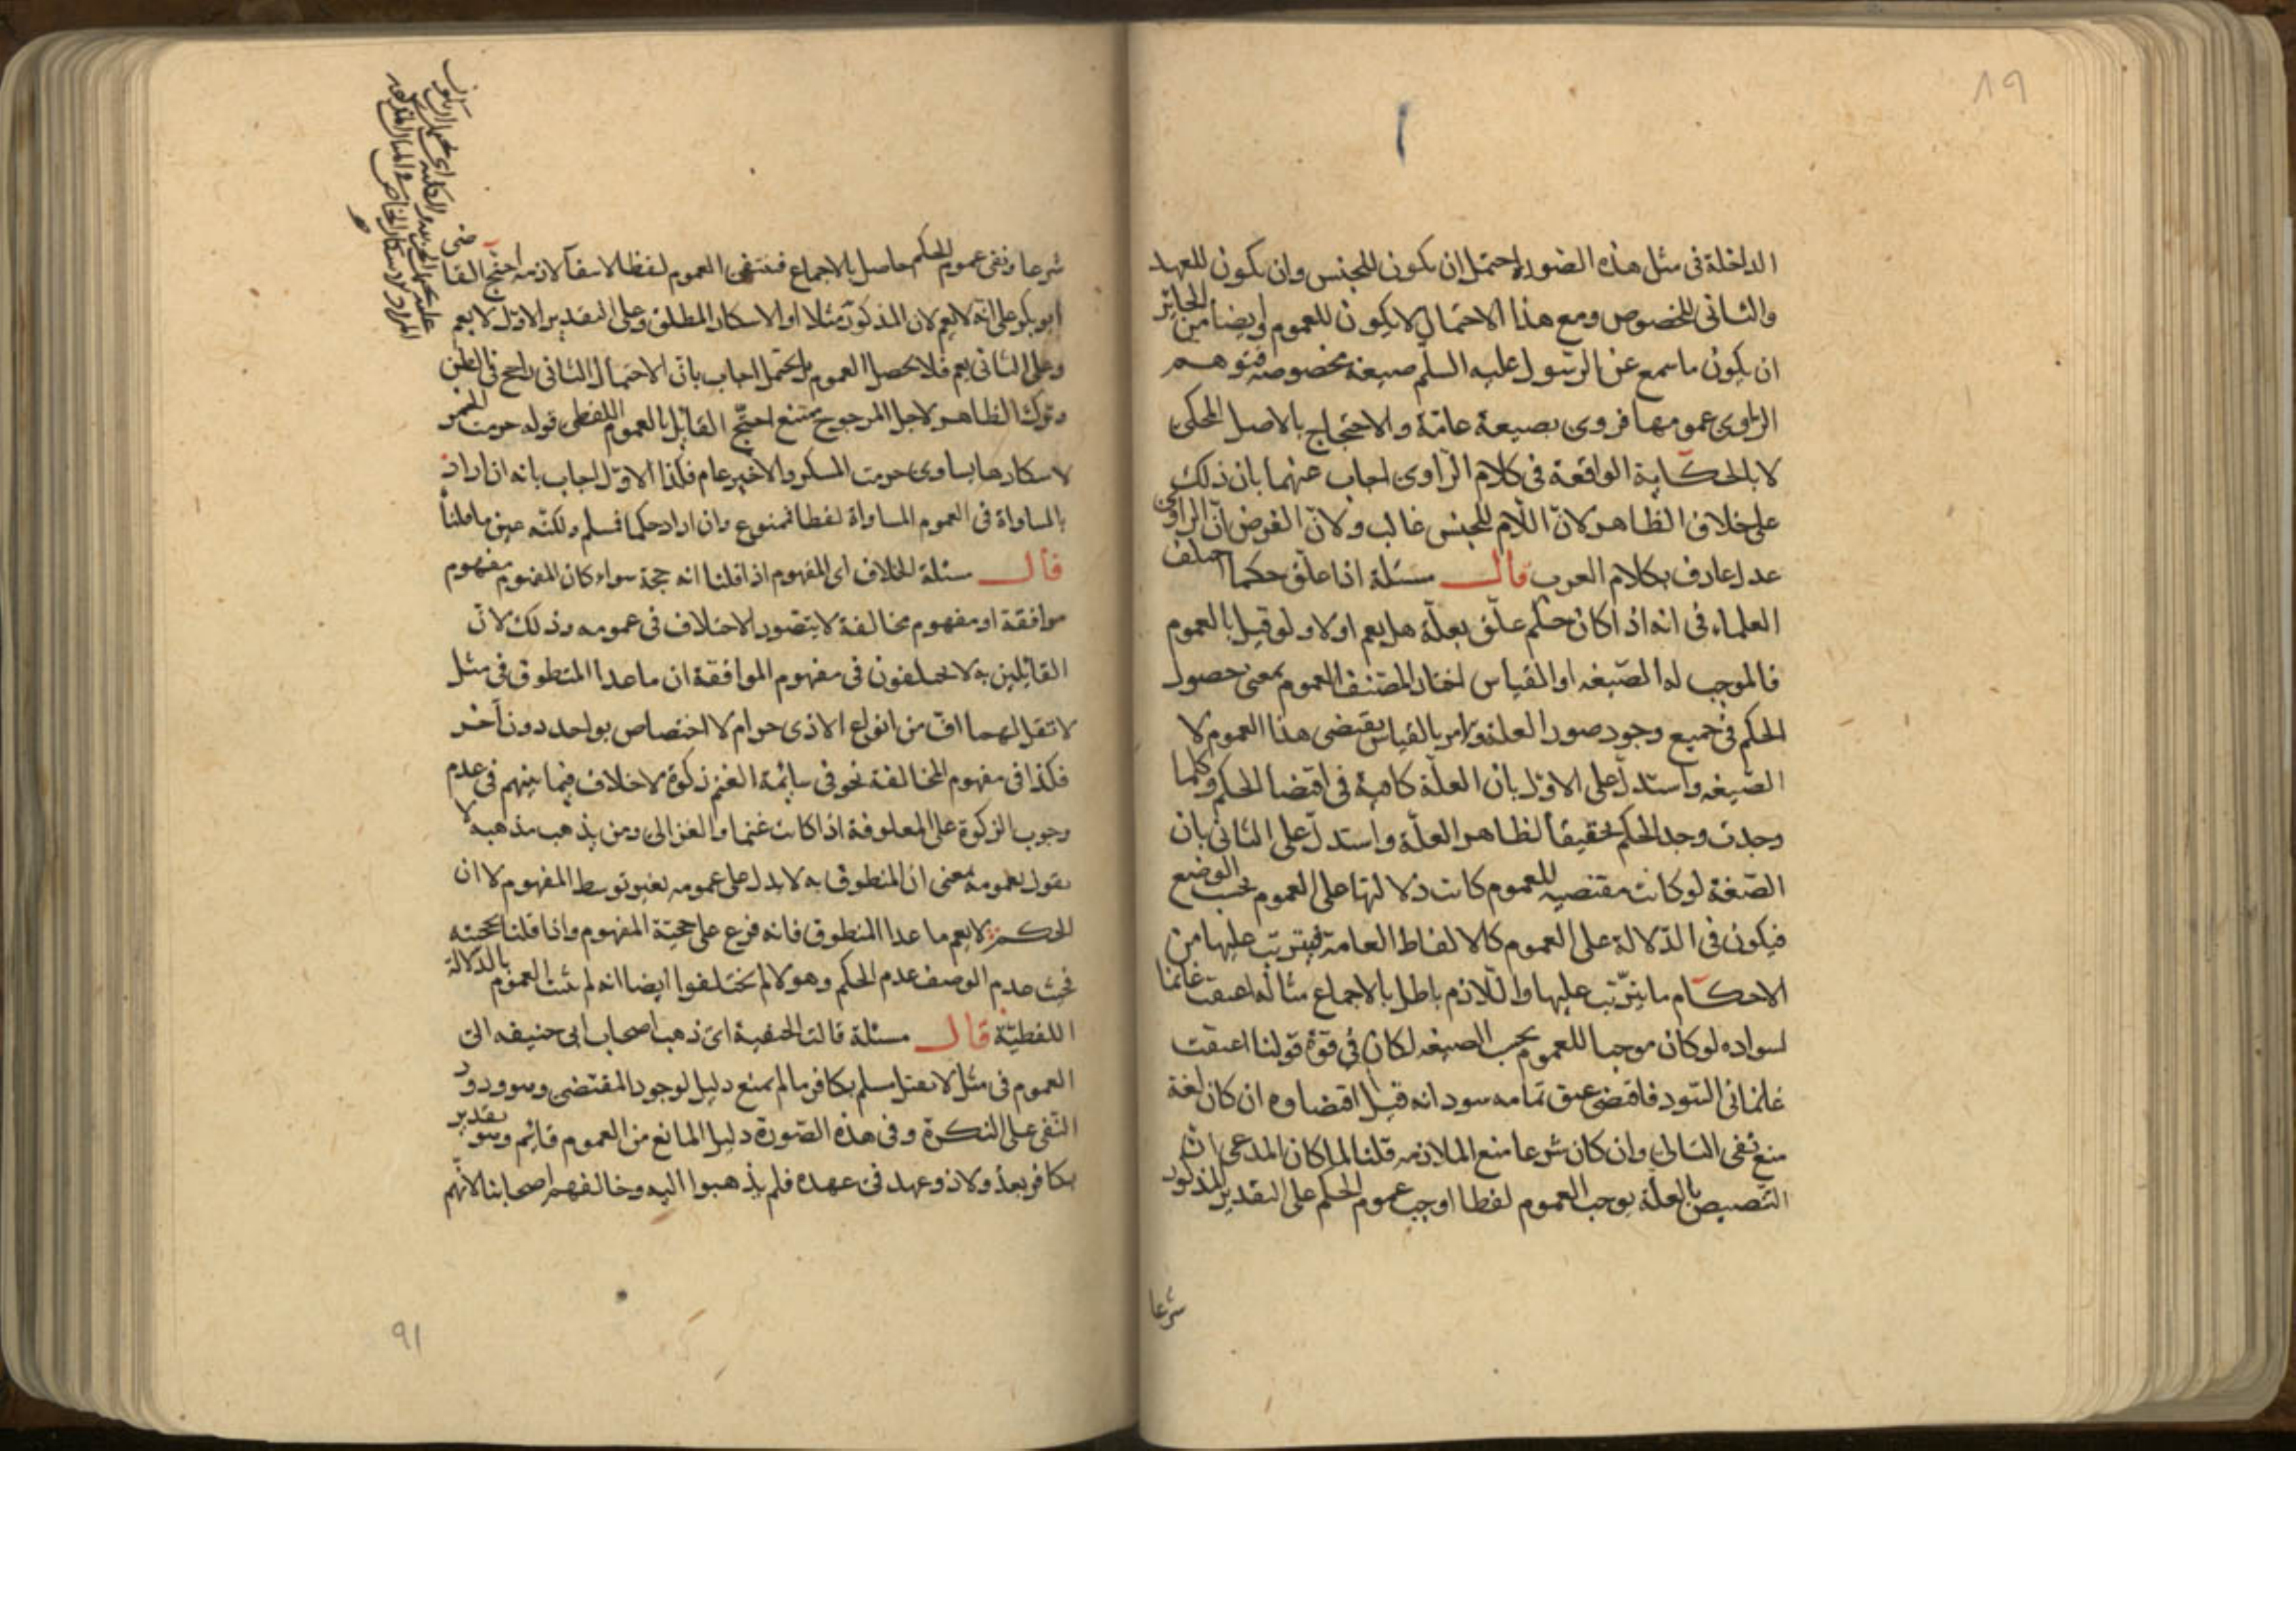 الداخلة فى مثل هذه الصورة احتمل ان يكون للجنس وان يكون للعهد
والثانى للخصوص ومع هذا الاحتمال لا يكون للعموم وايضا من الجايز
ان يكون ما سمع عن الرسول عليه السلم صيغة مخصوصة فتوهم
الراوى عمومها فروى بصيغة عامّة والاحتجاج بالاصل المحكى
لا بالحكاية الواقعة فى كلام الراوى اجاب عنهما بان ذلك
على خلاف الظاهر لانّ اللّام للجنس غالب ولانّ الفرض انّ الراوى
عدل عارف بكلام العرب قال مسئلة اذا علّق حكما اختلف
العلماء فى انه اذا كان حكم علّق بعلّة هل يعم اولا ولو قيل بالعموم
فالموجب له الصّيغه او القياس اختار المصّنف العموم بمعنى حصول
الحكم فى جميع وجود صور العلة والامر بالقياس يقتضى هذا العموم لا
الصّيغه واستدلّ على الاوّل بان العلّة كافية فى اقتضا الحكم وكلما
وجدت وجد الحكم تحقيقاً لظاهر العلّة واستدلّ على الثانى بان
الصّغة لو كانت مقتضيه للعموم كانت دلالتها على العموم بحسب الوضع
فيكون فى الدّلالة على العموم كالالفاظ العامة فيترتب عليها من
الاحكام ما يترّتب عليها واللّازم باطل بالاجماع مثاله اعتقت غانما
لسواده لو كان موجبا للعموم بحسب الصيغه لكان فى قوة قولنا اعتقت
غلمانى السّود فاقتضى عتق تمامه سودانه قيل اقتضاوه ان كان لغة
منع نفى التالى وان كان شرعا منع الملازمه قلنا لما كان المدعى ان
التصيص بالعلّة يوجب العموم لفظا اوجب عموم الحكم على التقدير المذكور
شرعا
شرعا ونفى عموم الحكم حاصل بالاجماع فينتفى العموم لفظا لانتفآ لازمه احتج القاضى
ابو بكر على انه لا يعم لان المذكور مثلا اما الاسكار المطلق وعلى التقدير الاوّل لا يعم
وعلى الثانى يعم فلا يحصل العموم بل يحتمل اجاب بانّ الاحتمال الثانى راجح فى الظن
وترك الظاهر لاجل المرجوح يمتنع احتجّ القايل بالعموم اللفظى قوله حرمت الخمر
لاسكارها يساوى حرمت المسكر والاخير عام فكذا الاوّل اجاب بانه ان اراد
بالمساواة فى العموم المساواة لفظا فممنوع وان اراد حكما فسلم ولكنّه عين ما قلنا
قال سئلة الخلاف اى المفهوم اذا قلنا انه حجة سواء كان المفهوم مفهوم
موافقة او مفهوم مخالفة لا يتصّور الاختلاف فى عمومه وذلك لانّ
القائلين به لا يختلفون فى مفهوم الموافقة ان ما عدا المنطوق فى مثل
لا تقل لهما افّ من انواع الاذى حرام لا اختصاص بواحد دون آخر
فكذا فى مفهوم المخالفة نحو فى سايمة الغنم زكوة لا خلاف فيما بينهم فى عدم
وجوب الزكوة على المعلوفة اذا كانت غنما والغزالى ومن يذهب مذهبه لا
يقول بعمومه بمعنى ان المنطوق به لا يدل على عمومه بغير توسط المفهوم لا ان
الحكم لا يعم ما عدا المنطوق فانه فرع على حجيّة المفهوم واذا قلنا بحجيّته
فحيث عدم الوصف عدم الحكم وهولا لم يختلفوا ايضا انه لم يثبت العموم بالدّلالة
اللفظيّة قال مسئلة قالت الحنفية اى ذهب اصحاب ابى حنيفه الى
العموم فى مثل لا يقتل مسلم بكافر ما لم يمنع دليل لوجود المقتضى وهو ورود
النّفى على النكرة وفى هذه الصّورة دليل المانع من العموم قايم وهو تقدير
بكافر بعد ولا ذو عهد فى عهده فلم يذهبوا اليه وخالفهم اصحابنا لانّهم
91